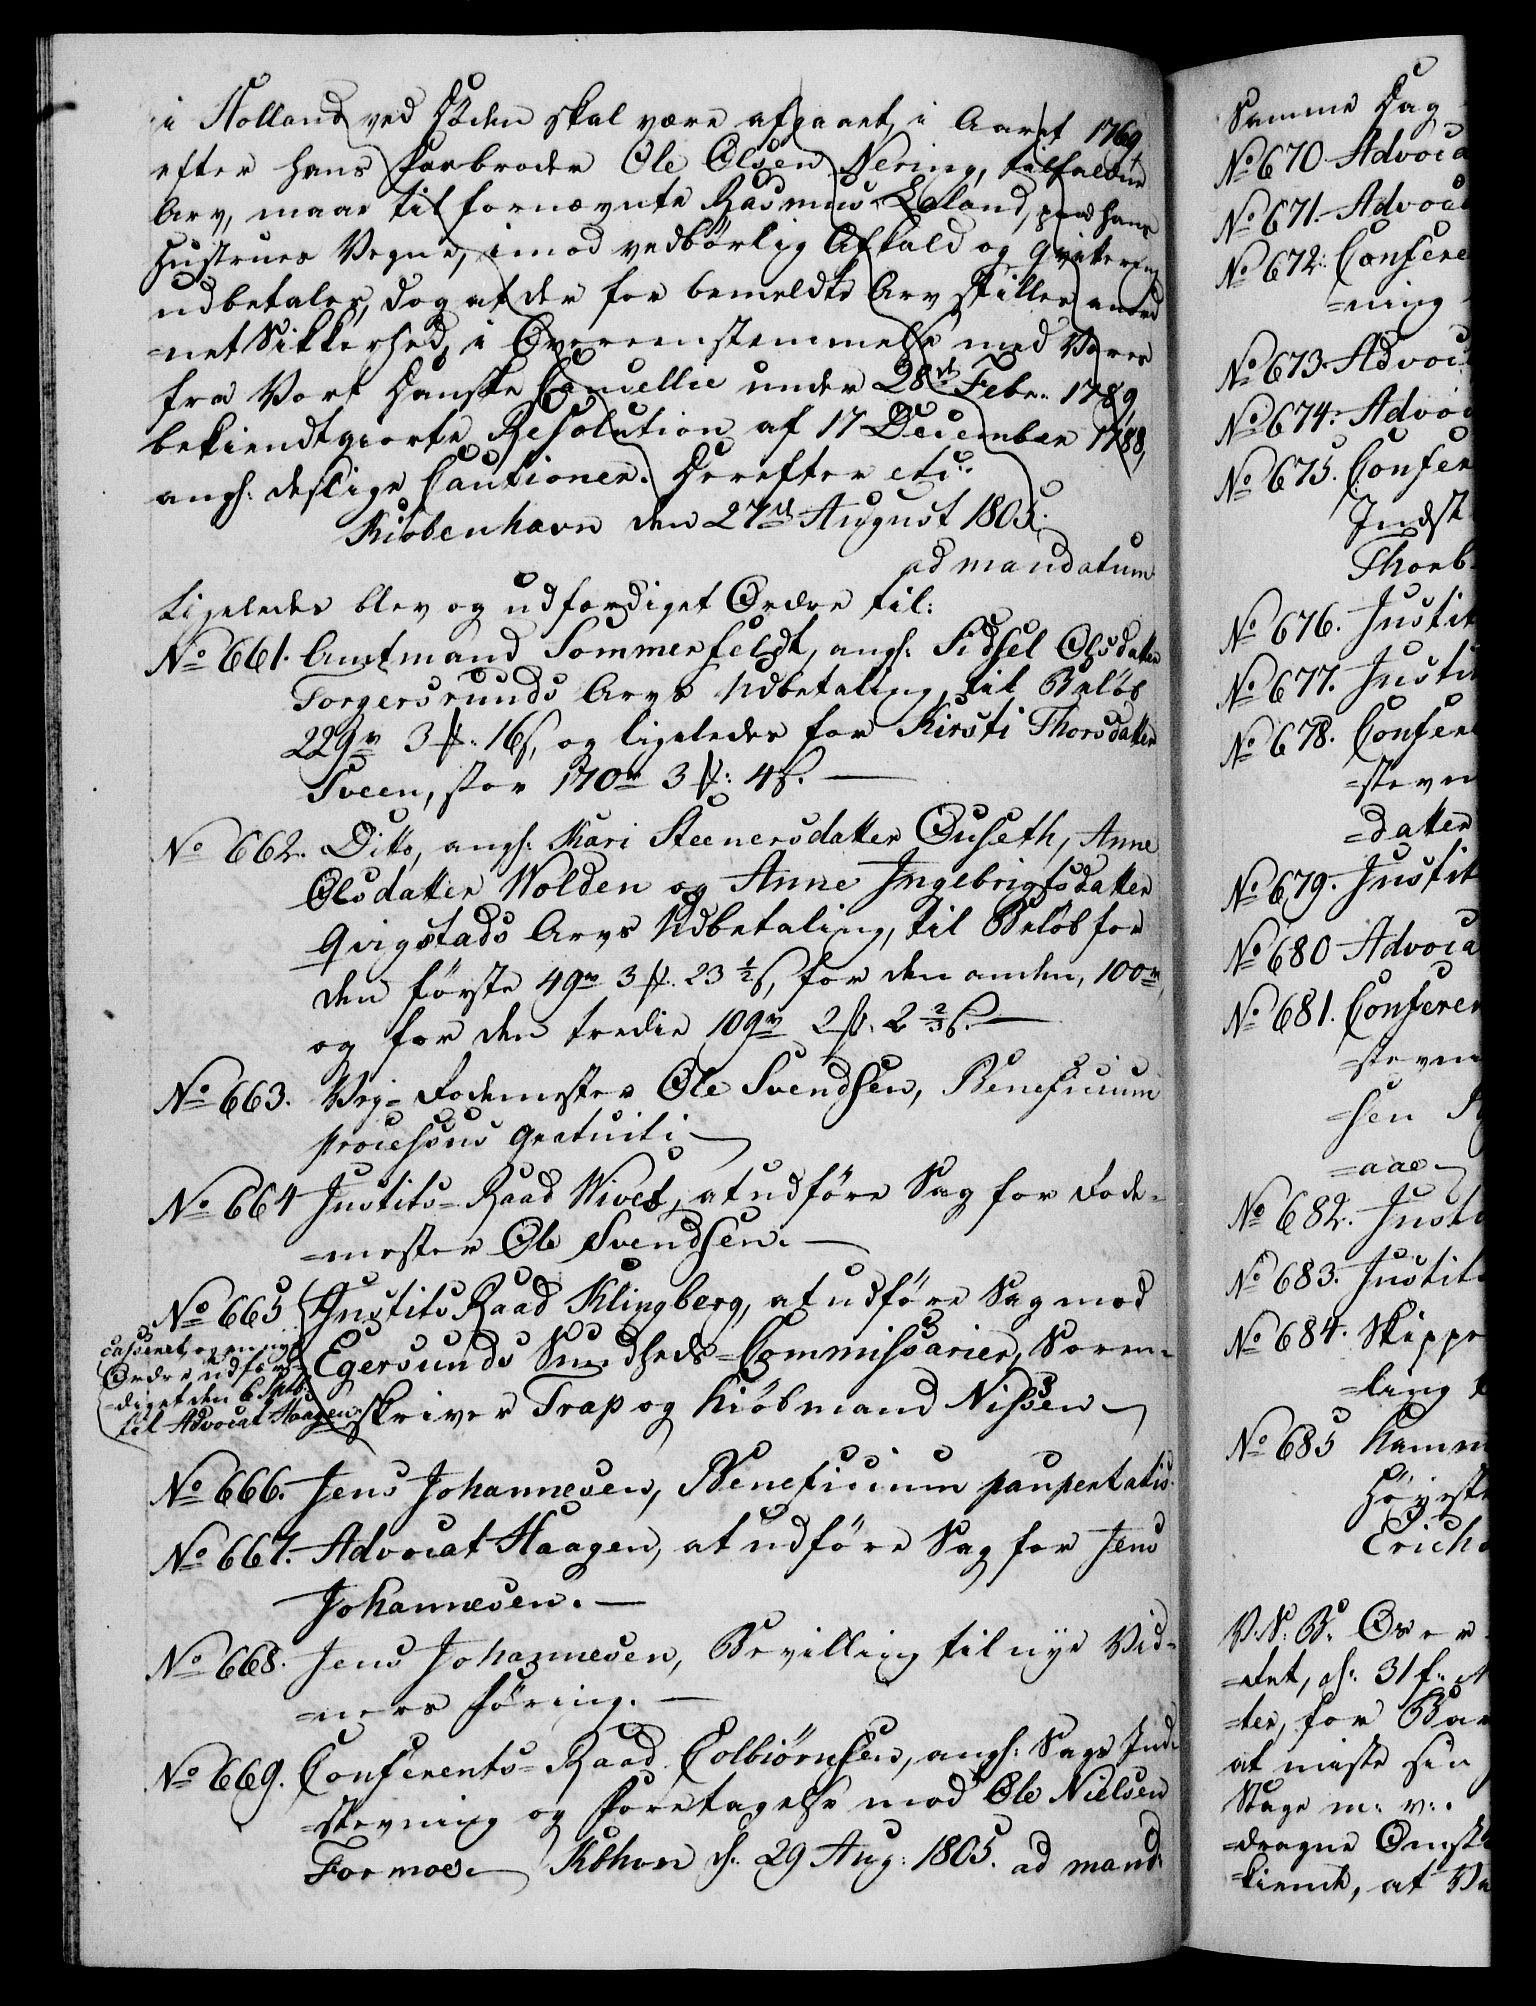 i Holland ved Døden skal være afgaaet, i Aaret 1769
efter hans Farbroder Ole Olsen Nering, tilfaldne
Arv, maae til fornævnte Rasmus Leland, paa hans
Hustrues Vegne, imod vedbørlig Afkald og Qvitering
udbetales, dog at der for bemeldte Arv stilles anord
=net Sikkerhed, i Overeensstemmelse med Vores
fra Vort Danske Cancellie under 28de Febr: 1789,
bekiendtgiorte Resolution af 17 December 1788,
angl: deslige Cautioner. Derefter etc:
Kiøbenhavn den 27de August 1805.
ad mandatum
Ligeledes blev og udfærdiget Ordre til:
No 661. Amtmand Sommerfeldt, angl: Sidsel Olsdatter
Torgersruuds Arvs Udbetaling, til Beløb
229rd 3 mk: 16 s, og ligeledes for Kirsti Thorsdatter
Sveen, stor 170rd 3 mk: 4 s.
No 662. Ditto, angl: Kari Steenersdatter Ouseth, Anne
Olsdatter Wolden og Anne Ingebrigtsdatter
Qvigstads Arvs Udbetaling, til Beløb for
den første 49rd 3 mk. 23 1/2 s, for den anden, 100rd,
og for den tredie 109rd 2 mk. 2 2/3 s.
No 663. Vej=Fodemester Ole Svendsen, Beneficium
processus gratuiti
No 664 Justits=Raad Wivet, at udføre Sag for Fode=
=mester Ole Svendsen.
No 665 Justits Raad Klingberg, at udføre Sag mod
Egersunds Sundheds=Commissarier, Soren=
skriver Trap og Kiøbmand Nissen
casseret, og en nye
Ordre udfær=
=diget den 6 Septb:
til Advocat Haagen
No 666. Jens Johannesen, Beneficium paupertatis.
No 667. Advocat Haagen, at udføre Sag for Jens
Johannesen.
No 668. Jens Johannesen, Bevilling til nye Vid=
=ners Føring.
No 669. Conferents=Raad Colbiørnsen, angl: Sags Ind=
=stevning og Foretagelse mod Ole Nielsen
Formoe. Kbhvn d. 29 Aug: 1805. ad mand:
Samme Dag
No 670 Advoca
No 671. Advoca
No 672. Confere
=ning
No 673. Advoc
No 674. Advoc
No 675. Confer
Indst
Thorb
No 676. Justit
No 677. Justit
No 678. Confere
=stevn
=datter
No 679. Justit
No 680 Advoca
No 681. Conferen
=steven
=sen
=aae
No 682. Justi
No 683. Justit
No 684. Skippe
=ling
No 685 Kamm
Høyest
Erichs
V. N. B. Over
=det, d: 31 f:
=ter, for Bar
at miste sin
Stage m: v:
=dragne Omst
=kiende, at Ve